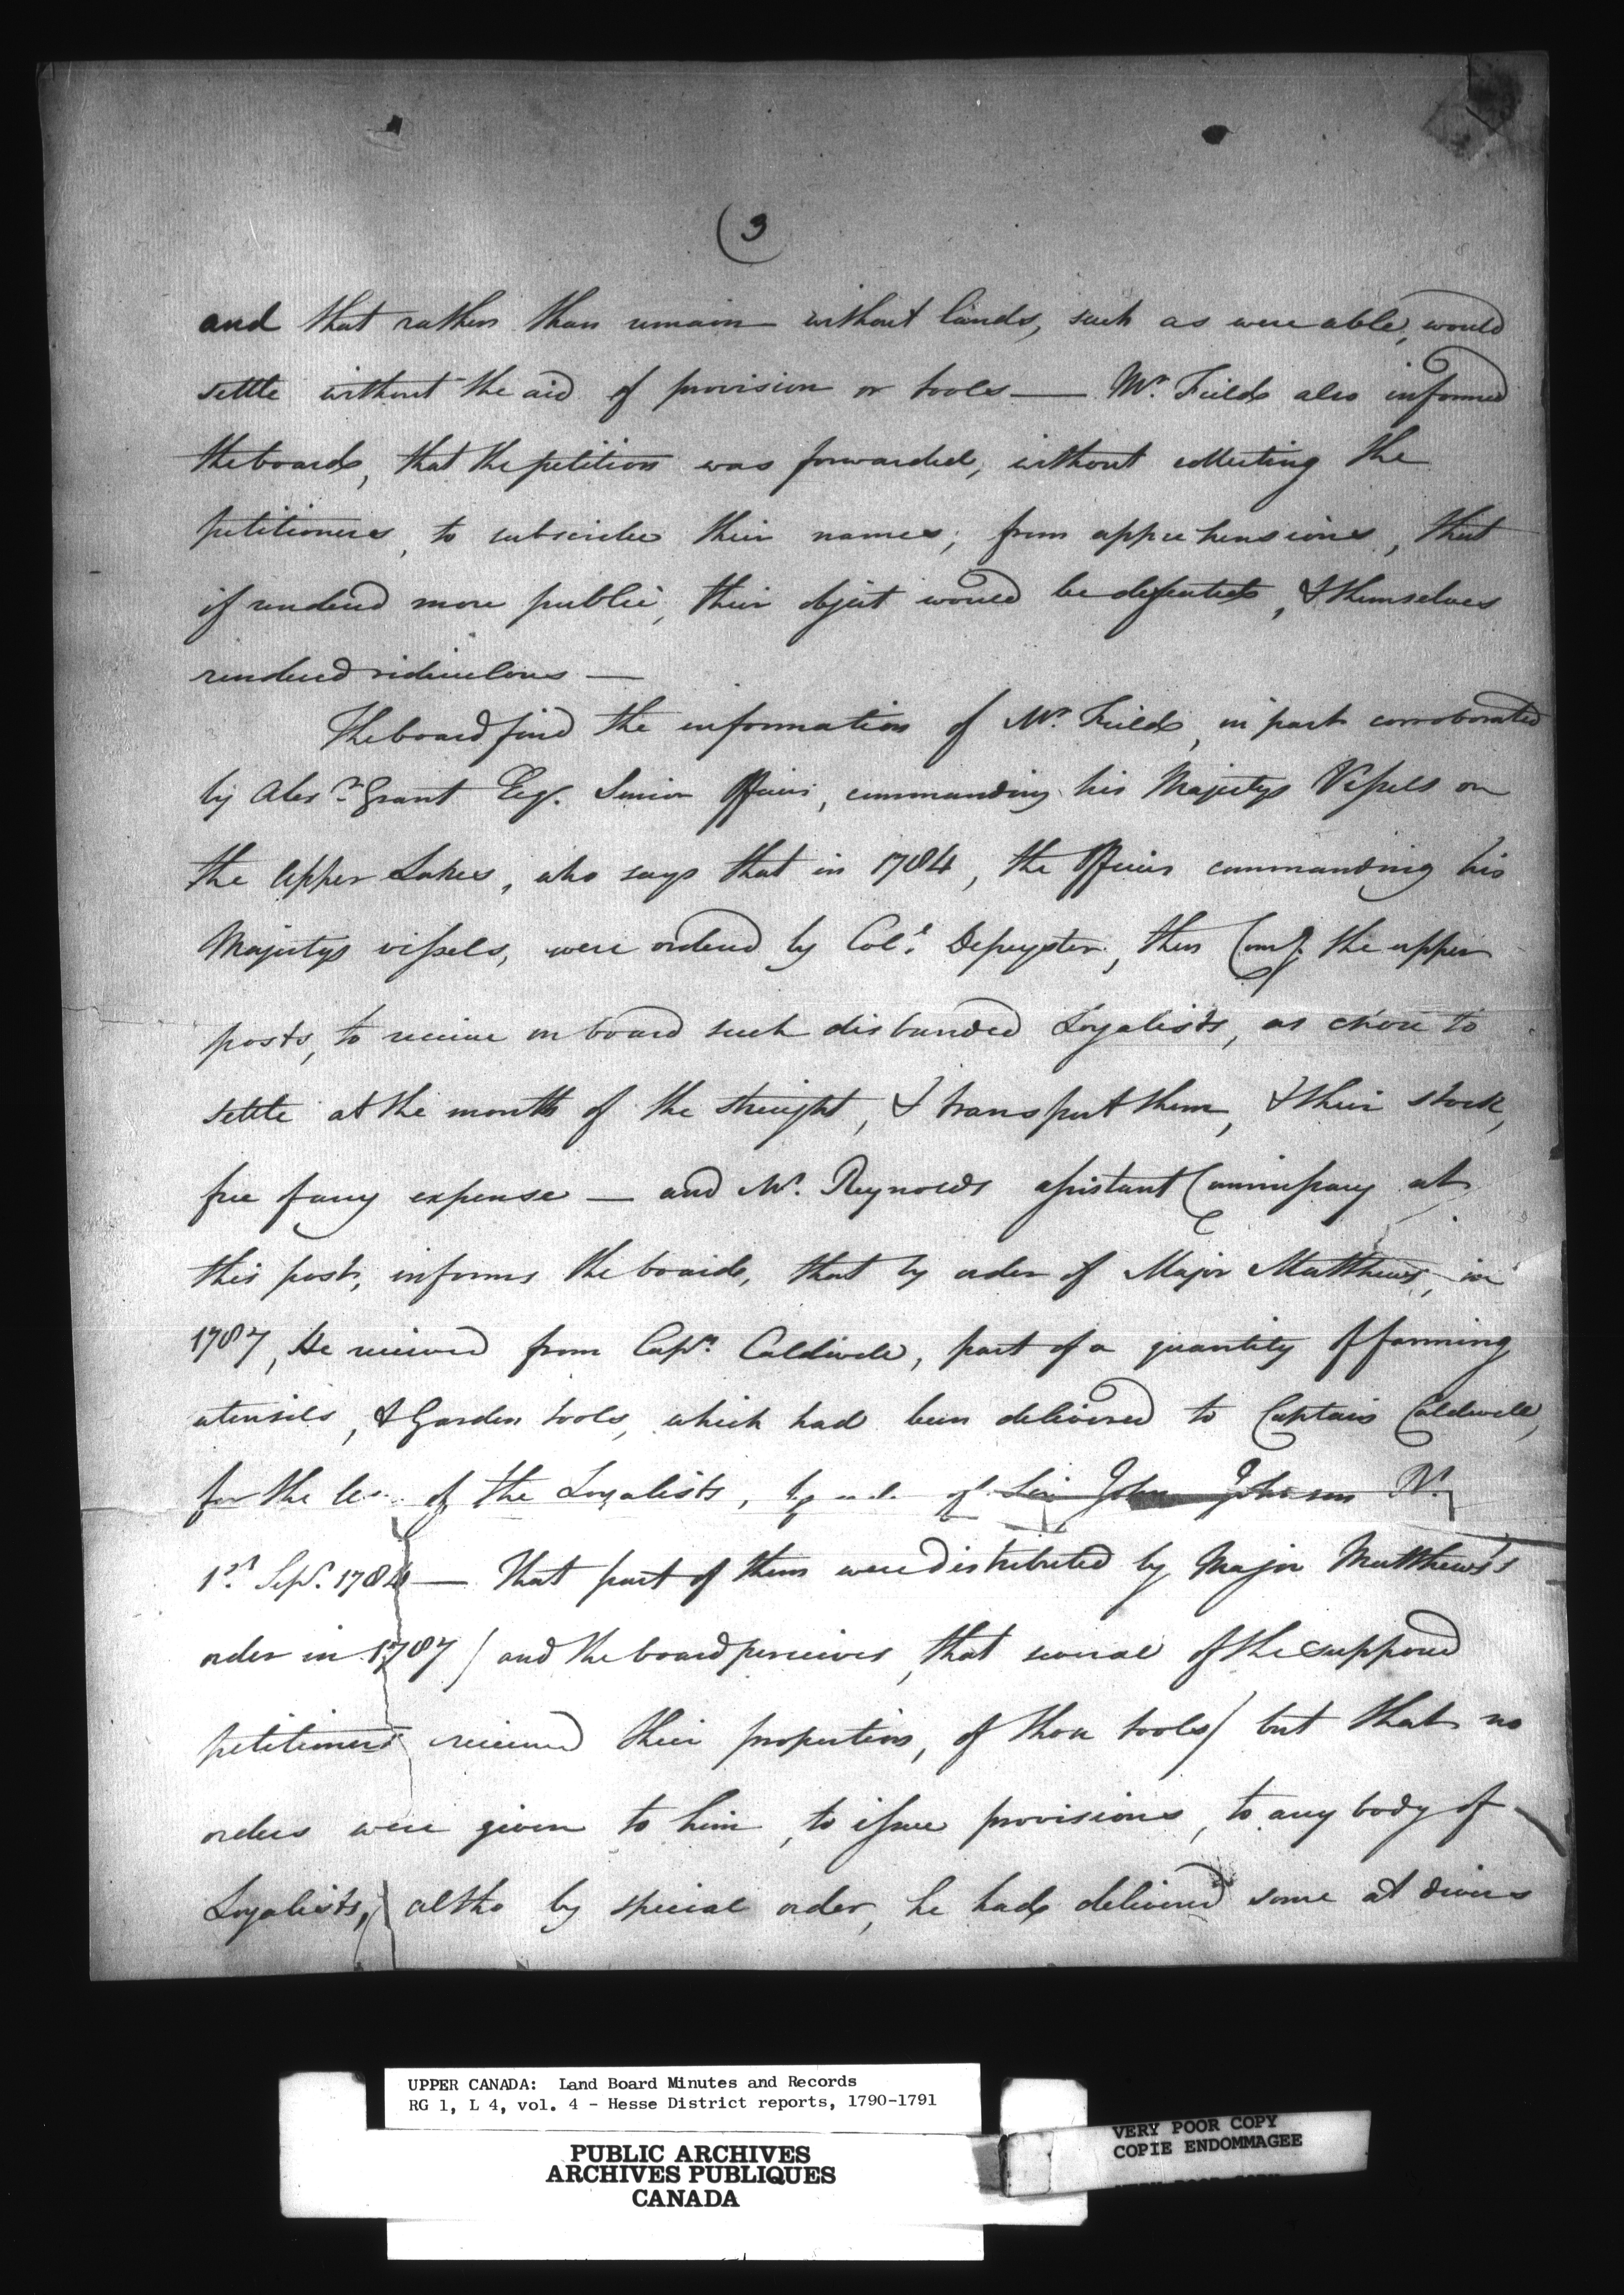 (3
and that rather than remain without lands, such as were able, would
settle without the aid of provision or tools — Mr. Field also informed
the board, that the petition was forwarded, without collecting the
petitioners, to subscribe their names; from apprehensions, that
if rendered more public, their object would be defeated, & themselves
rendered ridiculous —
The board find the information of Mr. Field, in part corroborated
by Alexr. Grant Esqr. Senior Officer, commanding his Majestys Vessels on
the upper Lakes, who says that in 1784, the Officers commanding his
Majestys vessels, were ordered by Col. Depeyster, then Comg. the upper
posts, to receive on board such disbanded Loyalists, as chose to
settle at the mouth of the streight, & transport them, & their stock,
free of any expense — and Mr. Reynolds assistant Commissary at
this post, informs the board, that by order of Major Matthews, in
1787, He received from Capn. Caldwell, part of a quantity of farming
utensils, & Garden tools, which had been delivered to Captain Caldwell,
for the of the Loyalists, by of Sir John Johnson
1st. Sepr. 1784 — That part of them were distributed by Major Matthews's
order in 1787 / and the board perceives, that several of the supposed
petitioners received their proportion, of those tools / but that no
orders were given to him, to issue provisions, to any body of
Loyalists, altho by special order, he had delivered some at divers
UPPER CANADA: Land Board Minutes and Records
RG 1, L 4, vol. 4 - Hesse District reports, 1790-1791
PUBLIC ARCHIVES
ARCHIVES PUBLIQUES
CANADA
VERY POOR COPY
COPIE ENDOMMAGEE